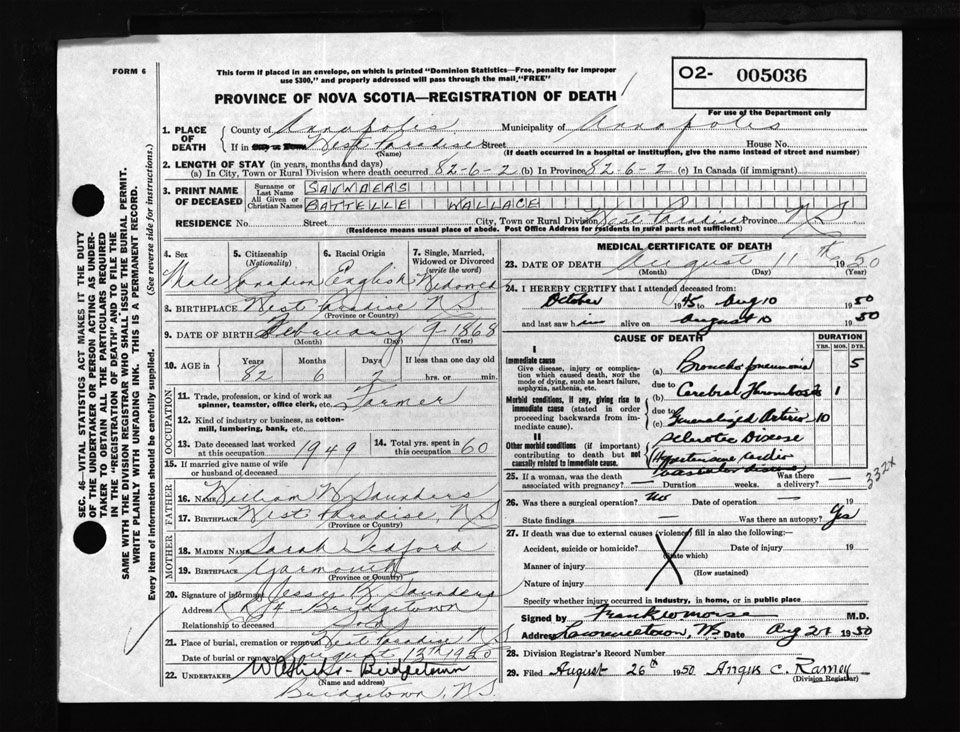 FORM 6
This form if placed in an envelope, on which is printed "Dominion Statistics—Free, penalty for improper
use $300," and properly addressed will pass through the mail, "FREE"
O2- 005036
For use of the Department only
PROVINCE OF NOVA SCOTIA—REGISTRATION OF DEATH
1. PLACE OF DEATH County of Annapolis Municipality of Annapolis
If in West Paradise Street House No.
(Name) (If death occurred in a hospital or institution, give the name instead of street and number)
2. LENGTH OF STAY (in years, months and days)
(a) In City, Town or Rural Division where death occurred 82-6-2 (b) In Province 82-6-2 (c) In Canada (if immigrant)
3. PRINT NAME OF DECEASED Surname or Last Name SAUNDERS
All Given or Christian Names BATTELLE WALLACE
RESIDENCE No. Street City, Town or Rural Division West Paradise Province N S
(Residence means usual place of abode. Post Office Address for residents in rural parts not sufficient)
4. Sex 5. Citizenship (Nationality) 6. Racial Origin 7. Single, Married, Widowed or Divorced (write the word)
Male Canadian English Widowed
8. BIRTHPLACE West Paradise N S
(Province or Country)
9. DATE OF BIRTH February 9-1868
(Month) (Day) (Year)
10. AGE in Years Months Days If less than one day old
82 6 2 hrs. or min.
OCCUPATION
11. Trade, profession, or kind of work as spinner, teamster, office clerk, etc. Farmer
12. Kind of industry or business, as cotton-mill, lumbering, bank, etc.
13. Date deceased last worked at this occupation 1949 14. Total yrs. spent in this occupation 60
15. If married give name of wife or husband of deceased
FATHER
16. NAME William Saunders
17. BIRTHPLACE West Paradise, N S
(Province or Country)
MOTHER
18. MAIDEN NAME Sarah Tedford
19. BIRTHPLACE Yarmouth
(Province or Country)
20. Signature of informant Saunders
Address Bridgetown
Relationship to deceased Son
21. Place of burial, cremation or removal West Paradise N S
Date of burial or removal August 13th 1950
22. UNDERTAKER Bridgetown
Bridgetown, N S
MEDICAL CERTIFICATE OF DEATH
23. DATE OF DEATH August 11th 1950
(Month) (Day) (Year)
24. I HEREBY CERTIFY that I attended deceased from:
October 1945 to Aug 10 1950
and last saw him alive on August 10 1950
CAUSE OF DEATH DURATION
YRS. MOS. DYS.
I
Immediate cause
Give disease, injury or complication which caused death, NOT the mode of dying, such as heart failure, asphyxia, asthenia, etc.
(a) Broncho pneumonia 5
due to
Morbid conditions, if any, giving rise to immediate cause (stated in order proceeding backwards from immediate cause).
(b) Cerebral Thrombosis 1
due to
(c) Generalized Arterio 10
sclerotic Disease
II
Other morbid conditions (if important) contributing to death but not causally related to immediate cause.
Hypertensive Cardio
vascular disease
332x
25. If a woman, was the death associated with pregnancy? — Duration weeks. Was there a delivery? —
26. Was there a surgical operation? No Date of operation 19
State findings — Was there an autopsy? Yes
27. If death was due to external causes (violence) fill in also the following:—
Accident, suicide or homicide? (State which) Date of injury 19
Manner of injury
(How sustained)
Nature of injury
Specify whether injury occurred in industry, in home, or in public place
Signed by Frank W Morse M.D.
Address Lawrencetown, NS Date Aug 21 1950
28. Division Registrar's Record Number
29. Filed August 26th 1950 Angus C. Ramey
(Division Registrar)
SEC. 46—VITAL STATISTICS ACT MAKES IT THE DUTY
OF THE UNDERTAKER OR PERSON ACTING AS UNDER-
TAKER TO OBTAIN ALL THE PARTICULARS REQUIRED
IN THE "REGISTRATION OF DEATH" AND TO FILE THE
SAME WITH THE DIVISION REGISTRAR WHO SHALL ISSUE THE BURIAL PERMIT.
WRITE PLAINLY WITH UNFADING INK. THIS IS A PERMANENT RECORD.
Every item of information should be carefully supplied. (See reverse side for instructions.)